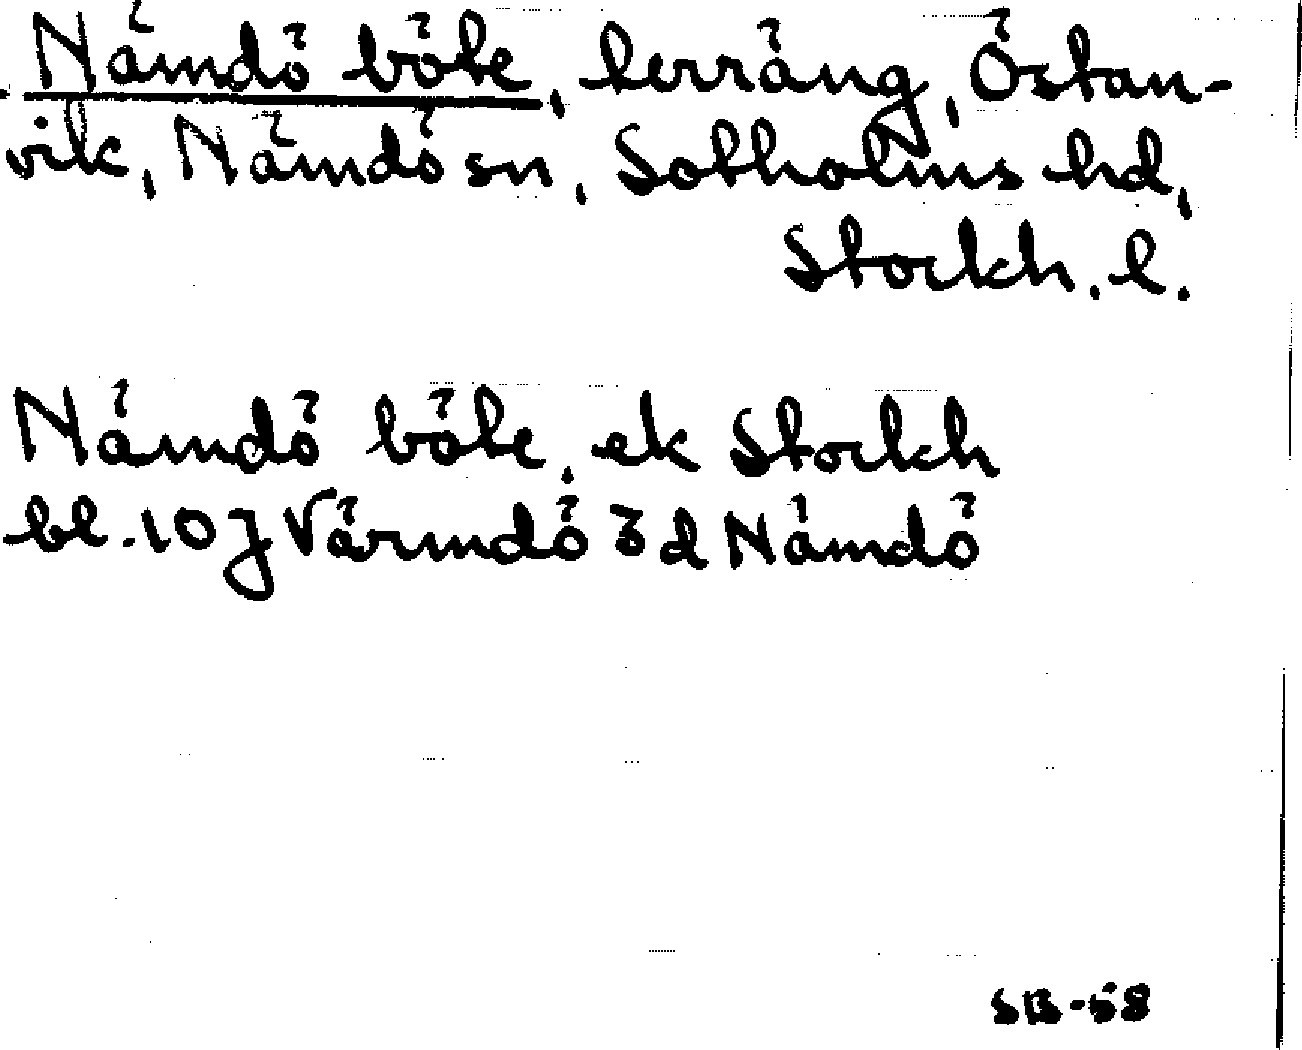 Nämdö böte, terräng, Östan-
vik, Nämdö sn, Sotholms hd,
Stockh. l.
Nämdö böte, ek Stockh
bl. 10 J Värmdö 3 d Nämdö
SB-58